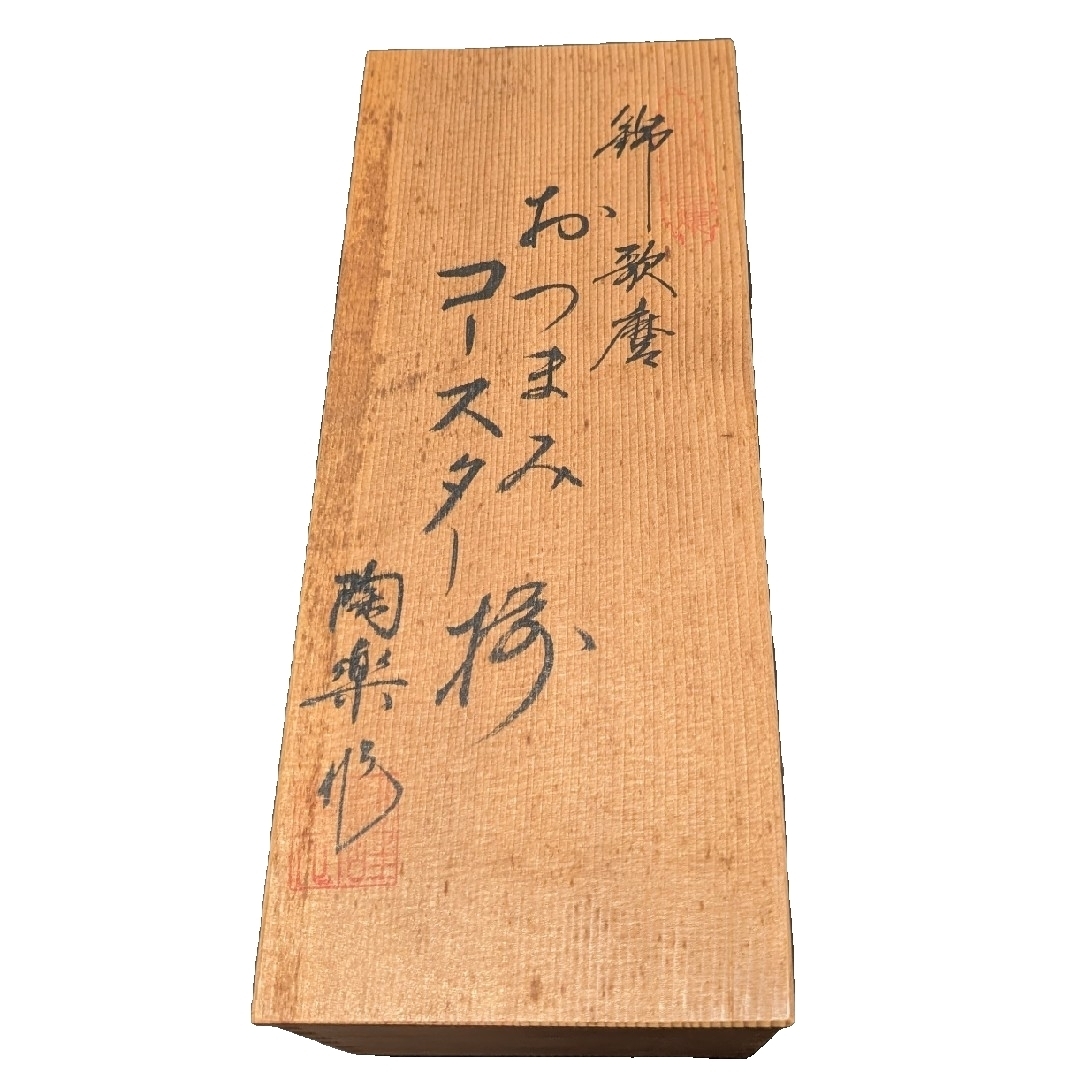 錦歌麿
おつまみ
コースター揃
陶楽作